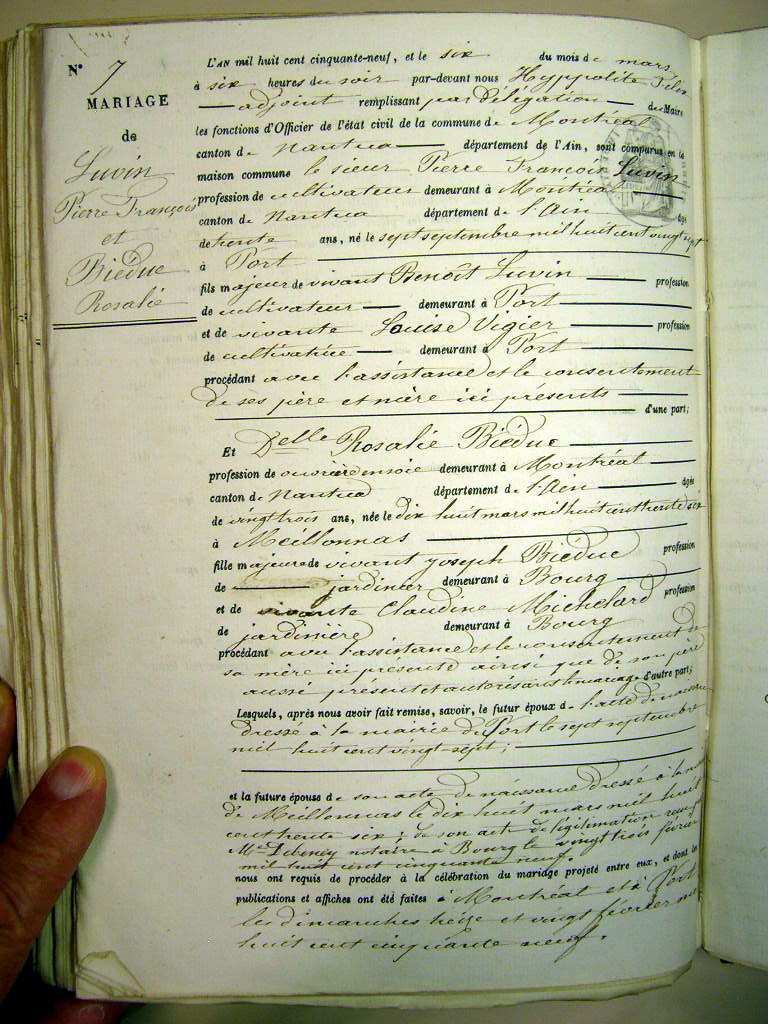 N° 7
MARIAGE
de
Luvin
Pierre François
et
Biéduc
Rosalie
L'AN mil huit cent cinquante-neuf, et le six du mois de mars
à six heures du soir par-devant nous Hyppolite
adjoint remplissant par délégation du Maire
les fonctions d'Officier de l'état civil de la commune de Montréal
canton de Nantua département de l'Ain, sont comparus en la
maison commune le sieur Pierre François Luvin
profession de cultivateur demeurant à Montréal
canton de Nantua département de l'Ain âgé
de trente ans, né le sept septembre mil huit cent vingt sept
à Port
fils majeur de vivant Benoît Luvin profession
de cultivateur demeurant à Port
et de vivante Louise Vigier profession
de cultivatrice demeurant à Port
procédant avec l'assistance et le consentement
de ses père et mère ici présents
d'une part;
Et Delle Rosalie Biéduc
profession de ouvrière en soie demeurant à Montréal
canton de Nantua département de l'Ain âgée
de vingt trois ans, née le dix huit mars mil huit cent trente six
à Meillonnas
fille majeure de vivant Joseph Biéduc profession
de jardinier demeurant à Bourg
et de vivante Claudine Michelard profession
de jardinière demeurant à Bourg
procédant avec l'assistance et le consentement de
sa mère ici présente ainsi que de son père
aussi présent et autorisant le mariage d'autre part;
Lesquels, après nous avoir fait remise, savoir, le futur époux de l'acte de naissance
dressé à la mairie de Port le sept septembre
mil huit cent vingt-sept;
et la future épouse de son acte de naissance dressé à la
de Meillonnas le dix huit mars mil huit
cent trente six; de son acte de légitimation
Me notaire à Bourg le vingt trois février
mil huit cent cinquante neuf.
nous ont requis de procéder à la célébration du mariage projeté entre eux, et dont les
publications et affiches ont été faites à Montréal et à Port
les dimanches treize et vingt février mil
huit cent cinquante neuf.